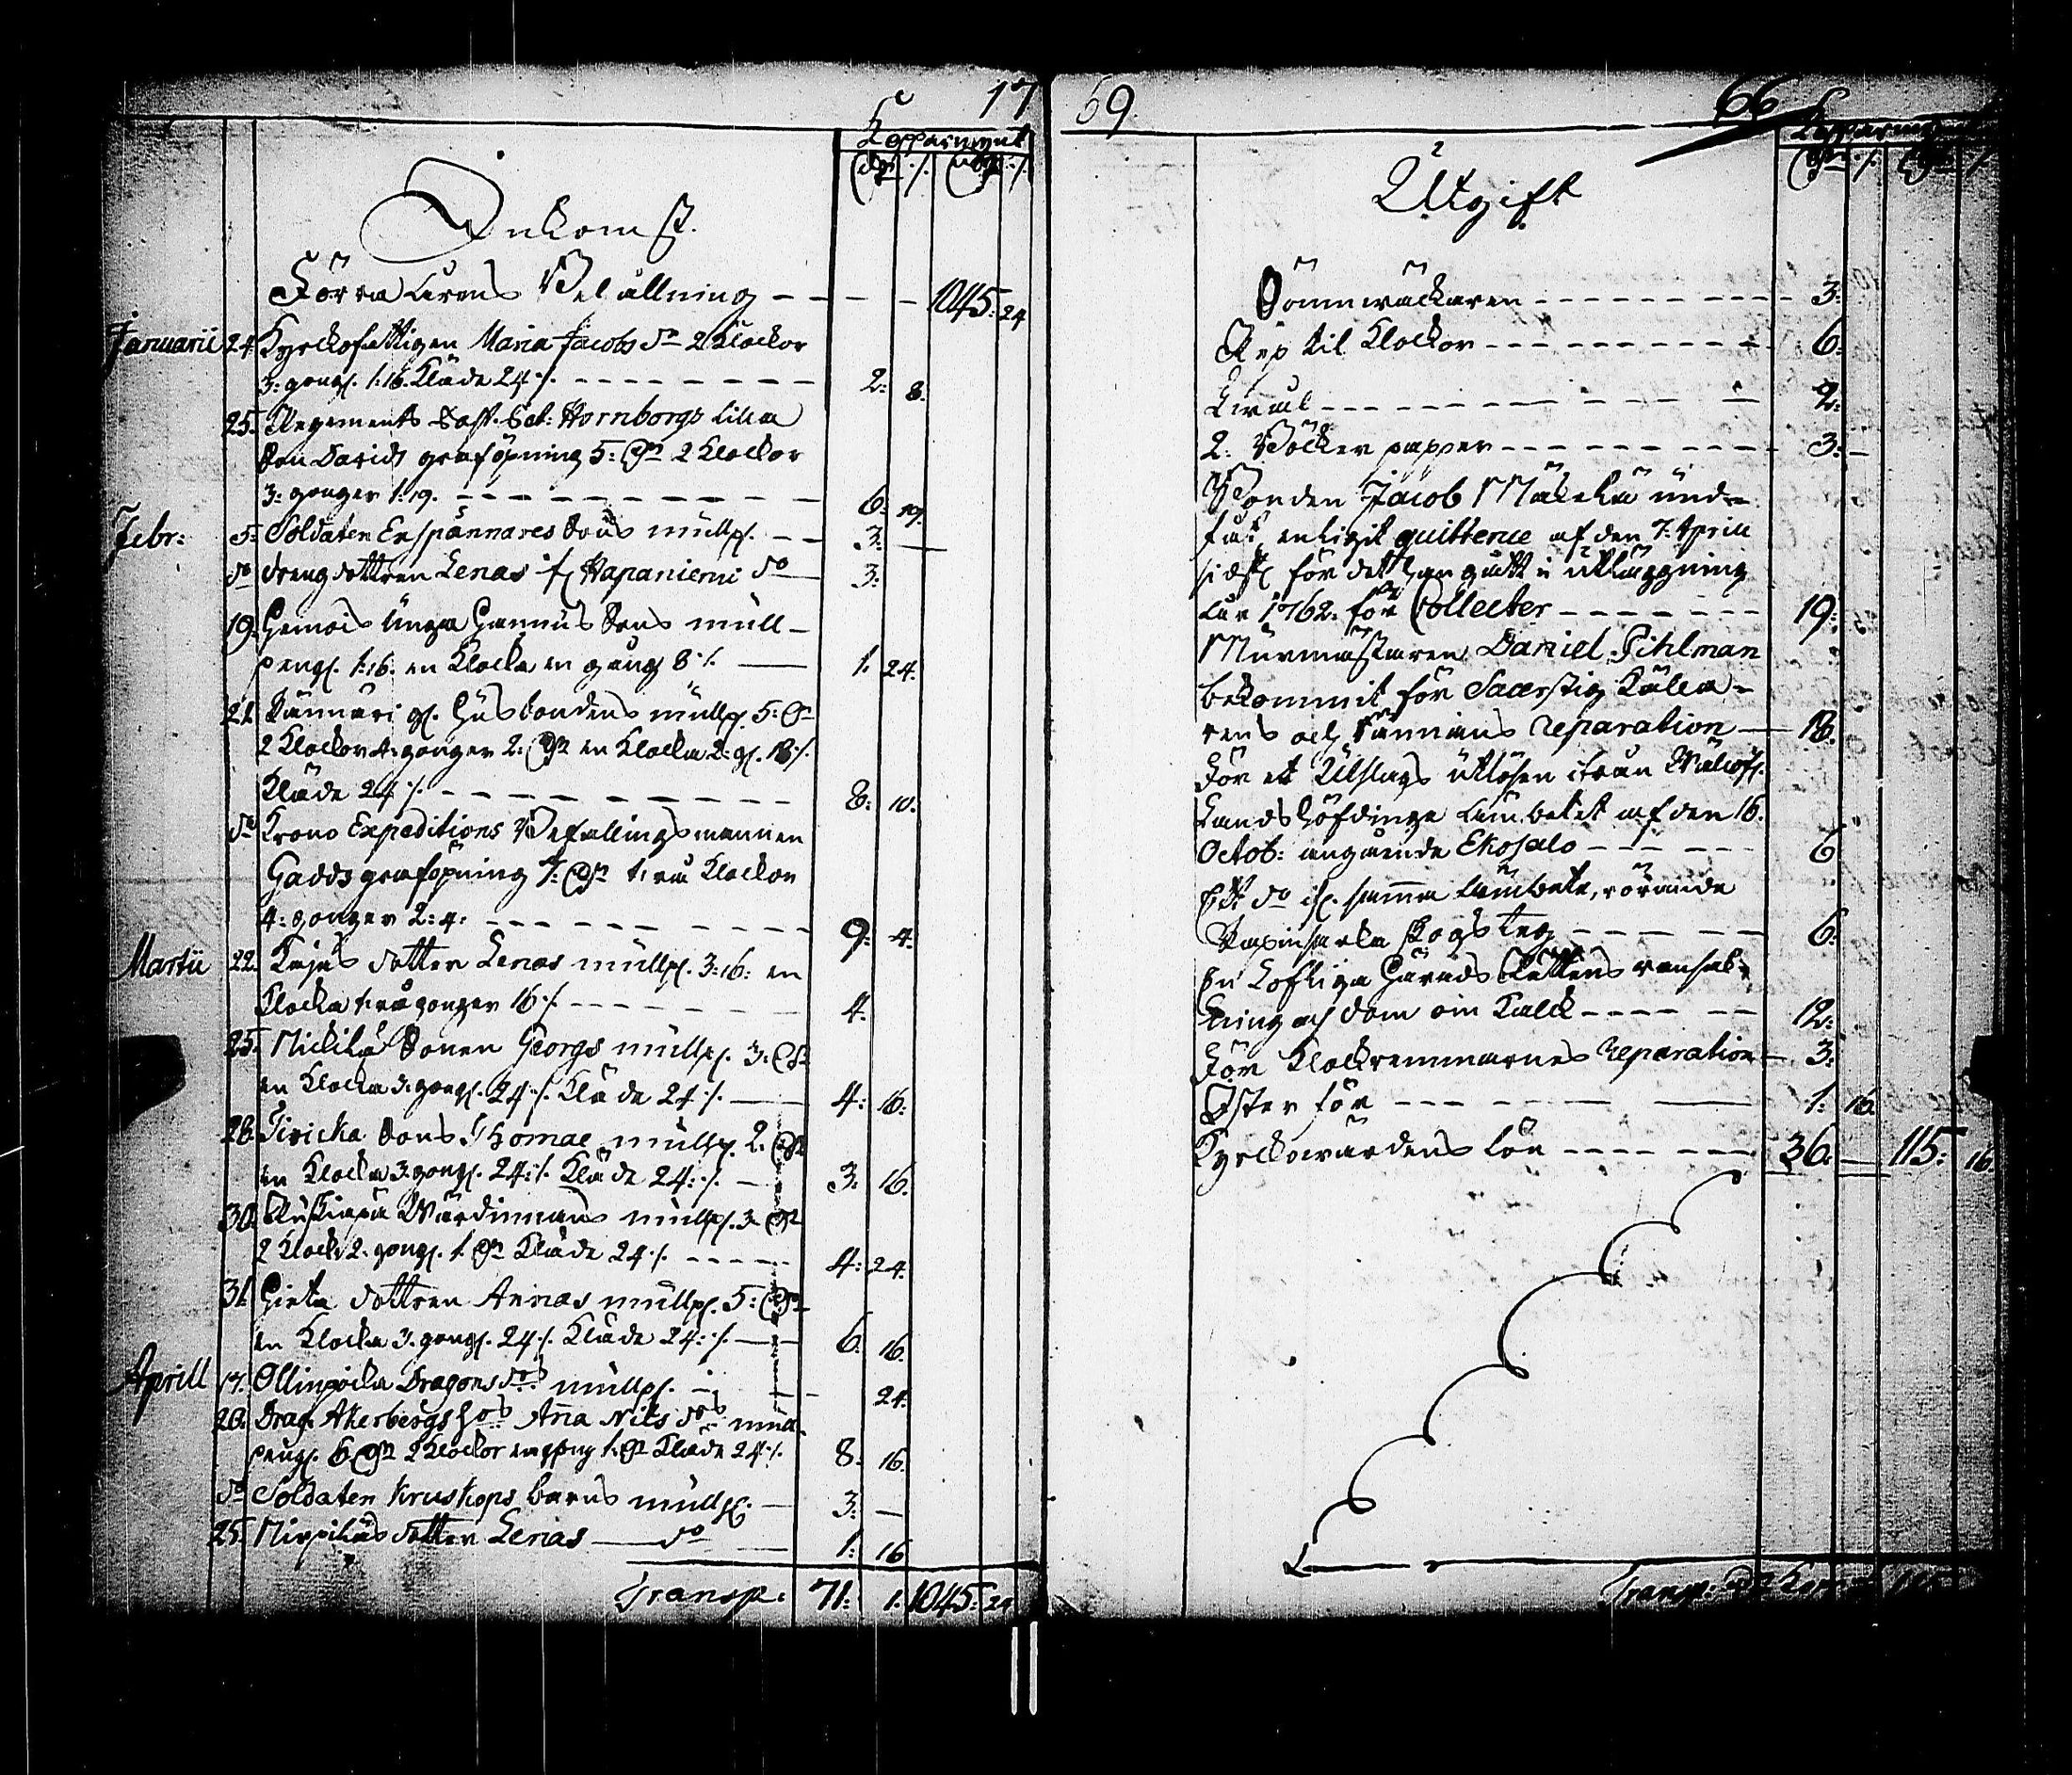 17
Kopparmynt
Dr ./. Dr ./.
Inkomst.
Förra årens Behållning - - - - 1045: 24
Januarii 24. Kyrckofattigen Maria Jacobs dr 2 Klockor
3: gong. 1:16. Kläde 24./. - - - - - - - - 2: 8.
25. Regements Hornborgs lilla
Son Davids graföpning 5: Dr 2 Klockor
3: gonger 1:19. - - - - - - - - 6: 19.
Febr: 5. Soldaten Enspännares Sons mullp. - - 3: —
do drengdottren Lenas if. Hapaniemi do 3:
19. unga Hannus Sons mull-
peng. 1:16. en Klocka en gång 8./. — 1. 24.
21. Husbondens mullp. 5: Dr
2 Klockor 4. gonger 2: Dr en Klocka 2. g. 18./.
Kläde 24./. - - - - - - - - 8: 10.
do Krono Expeditions Befallningsmannen
Gadds graföpning 7: Dr två Klockor
4: gonger 2: 4: - - - - - - 9: 4.
Martii 22. Kajus dotter Lenas mullp. 3:16: en
Klocka två gonger 16./. - - - - - - 4.
25. Mickilä Sonen Georgs mullp. 3: Dr
en Klocka 3. gong. 24./. Kläde 24./. — 4: 16:
28. Piricka Sons Thomae mullp. 2. Dr
en Klocka 3. gong. 24./. Kläde 24./. — 3. 16.
30. Wärdinnans mullp. 3 Dr
2 Klock. 2. gong. 1. Dr Kläde 24./. - - - - 4: 24.
31. dottren Annas mullp. 5: Dr
en Klocka 3. gong. 24./. Kläde 24./. — 6. 16.
Aprill 17. Ollinpoika Dragons drs mullp. - - - 24.
20. Drag. Akerbergs hos Anna Nils drs mull-
peng. 6 Dr 2 Klockor en gong 1. Dr Kläde 24./. 8. 16.
do Soldaten Kruskops barns mullp. — 3. —
25. dotter Lenas — do — 1: 16
Transp: 71: 1. 1045: 24
69. 66
Kopparmynt
Dr ./. Dr ./.
Utgift
Sömnväckaren - - - - - - - - 3:
Rep til Klockor - - - - - - - - 6:
- - - - - - - - 2.
2. Böcker papper - - - - - - - - 3: —
Bonden Jacob Mäkelä und-
fåt, enligit quittence af den 7. Aprill
sidst. för det han gått i utläggning
åår 1762. för Collecter - - - - - - 19:
Murmästaren Daniel Pihlman
bekommit för Sacerstig Källa-
rens och Reparation — 18.
För ett Utslags utlösen ifrån Wälof.
Landshöfdinge Embetet af den 16.
Octob: angående Ekosalo - - - - - 6
Ett do if. samma Embete, rörande
skogs teg - - - - - 6:
En Lofliga Härads Rättens ransak-
ning och dom om Kalck - - - - - - 12:
För Klockremmarnes Reparation — 3:
Oster för - - - - - — 1: 16.
Kyrckovärdens lön - - - - - - 36: — 115: 16.
Transp: